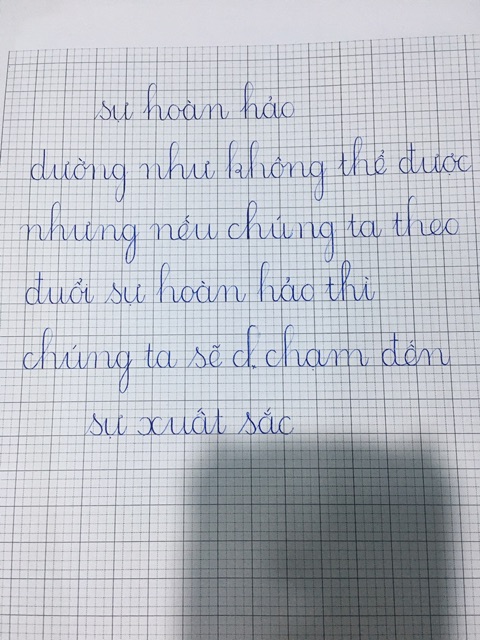 sự hoàn hảo
dường như không thể được
nhưng nếu chúng ta theo
đuổi sự hoàn hảo thì
chúng ta sẽ d. chạm đến
sự xuất sắc